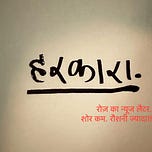 हरकारा.
रोज़ का न्यूज लैटर.
शोर कम. रौशनी ज्यादा!